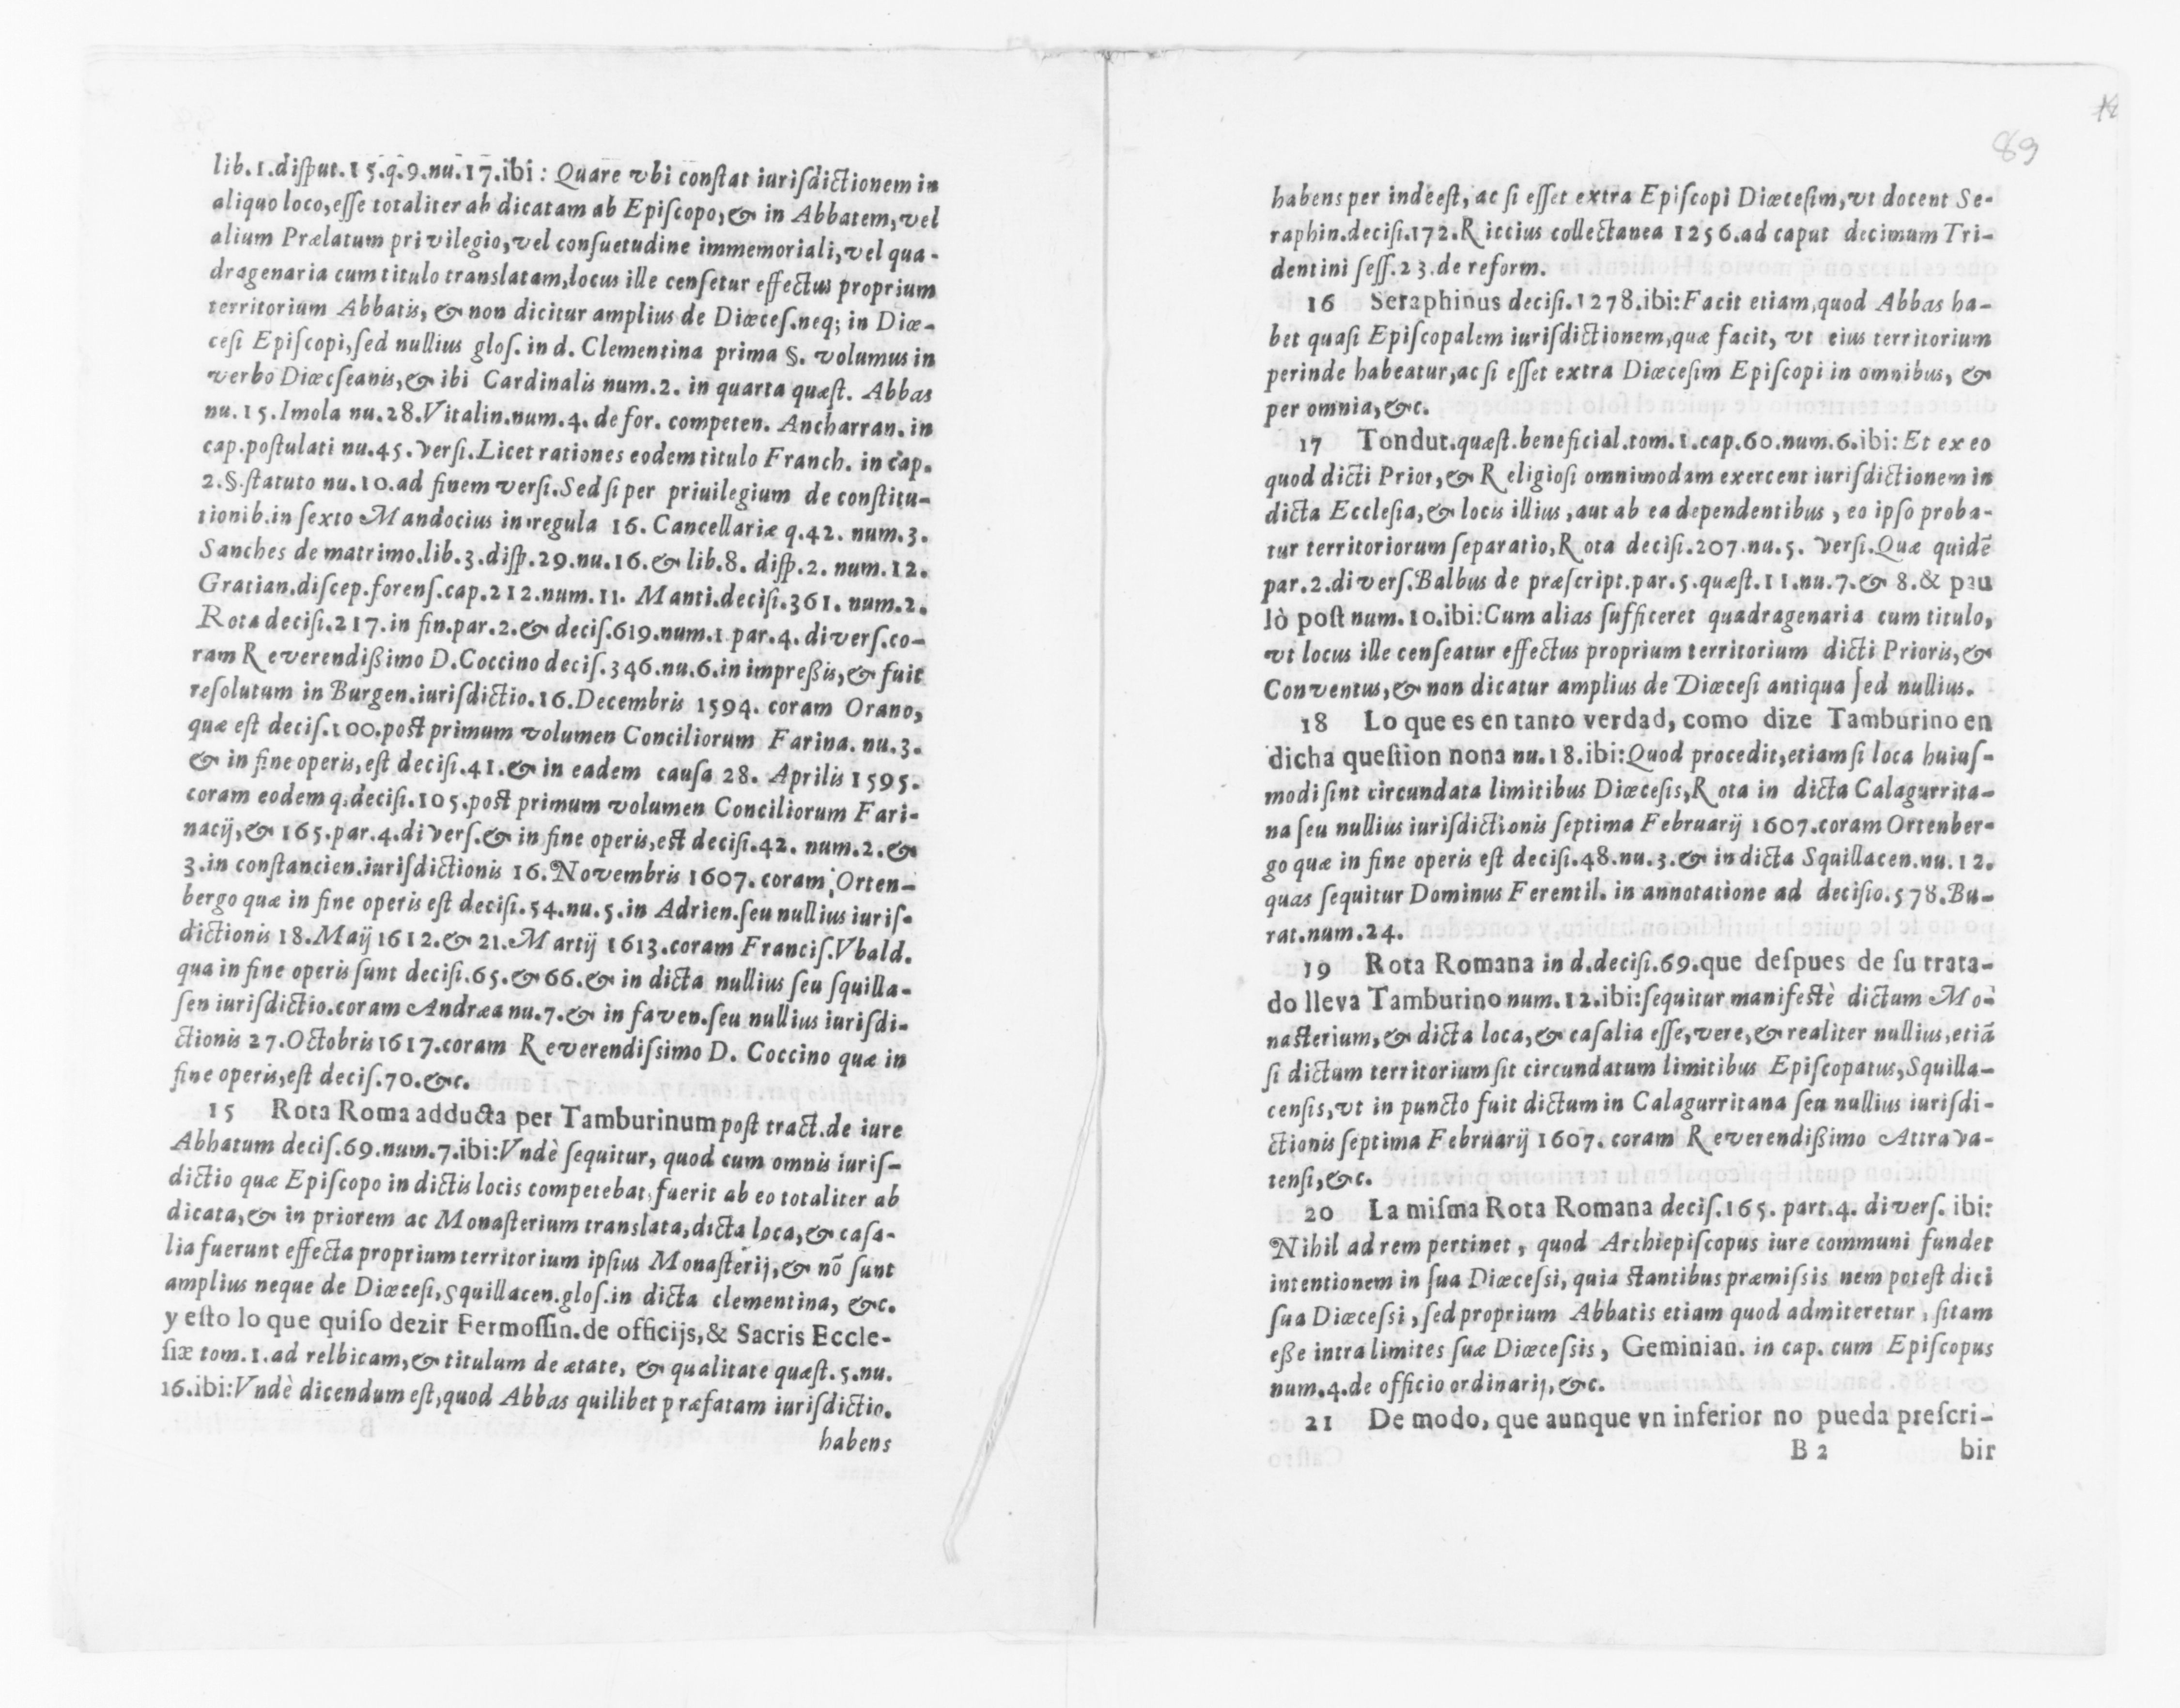 lib.1.diſput.15.q.9.nu.17.ibi: Quare vbi conſtat iuriſdictionem in
aliquo loco,eſſe totaliter ab dicatam ab Epiſcopo,& in Abbatem,vel
alium Prælatum privilegio,vel conſuetudine immemoriali,vel qua-
dragenaria cum titulo translatam,locus ille cenſetur effectus proprium
territorium Abbatis, & non dicitur amplius de Diœceſ.neq; in Diœ-
ceſi Epiſcopi,ſed nullius gloſ. in d. Clementina prima §. volumus in
verbo Diœcſeanis,& ibi Cardinalis num.2. in quarta quæſt. Abbas
nu.15.Imola nu.28.Vitalin.num.4. de for. competen. Ancharran. in
cap.poſtulati nu.45. verſi.Licet rationes eodem titulo Franch. in cap.
2.§.ſtatuto nu.10.ad finem verſi.Sed ſi per priuilegium de conſtitu-
tionib.in ſexto Mandocius in regula 16. Cancellariæ q.42. num.3.
Sanches de matrimo.lib.3.diſp.29.nu.16.& lib.8. diſp.2. num.12.
Gratian.diſcep.forenſ.cap.212.num.11. Manti.deciſi.361. num.2.
Rota deciſi.217.in fin.par.2.& deciſ.619.num.1 par.4. diverſ.co-
ram Reverendißimo D.Coccino deciſ.346.nu.6.in impreßis,& fuit
reſolutum in Burgen.iuriſdictio.16.Decembris 1594. coram Orano,
quæ eſt deciſ.100.poſt primum volumen Conciliorum Farina. nu.3.
& in fine operis,eſt deciſi.41.& in eadem cauſa 28. Aprilis 1595.
coram eodem q.deciſi.105.poſt primum volumen Conciliorum Fari-
nacij,& 165.par.4.diverſ.& in fine operis,eſt deciſi.42. num.2.&
3.in conſtancien.iuriſdictionis 16.Novembris 1607. coram Orten-
bergo quæ in fine operis eſt deciſi.54.nu.5.in Adrien.ſeu nullius iuriſ-
dictionis 18.Maij 1612.& 21.Martij 1613.coram Franciſ.Vbald.
qua in fine operis ſunt deciſi.65.& 66.& in dicta nullius ſeu ſquilla-
ſen iuriſdictio.coram Andræa nu.7.& in faven.ſeu nullius iuriſdi-
ctionis 27.Octobris 1617.coram Reverendiſsimo D. Coccino quæ in
fine operis,eſt deciſ.70.&c.
15 Rota Roma adducta per Tamburinum poſt tract.de iure
Abbatum deciſ.69.num.7.ibi:Vndè ſequitur, quod cum omnis iuriſ-
dictio quæ Epiſcopo in dictis locis competebat,fuerit ab eo totaliter ab
dicata,& in priorem ac Monaſterium translata,dicta loca,& caſa-
lia fuerunt effecta proprium territorium ipſius Monaſterij,& nõ ſunt
amplius neque de Diœceſi,Squillacen.gloſ.in dicta clementina, &c.
y eſto lo que quiſo dezir Fermoſſin.de officijs,& Sacris Eccle-
ſiæ tom.1.ad relbicam,& titulum de ætate, & qualitate quæſt.5.nu.
16.ibi:Vndè dicendum eſt,quod Abbas quilibet præfatam iuriſdictio.
habens
89
habens per inde eſt, ac ſi eſſet extra Epiſcopi Diœceſim,vt docent Se-
raphin.deciſi.172.Riccius collectanea 1256.ad caput decimum Tri-
dentini ſeſſ.23.de reform.
16 Seraphinus deciſi.1278.ibi:Facit etiam,quod Abbas ha-
bet quaſi Epiſcopalem iuriſdictionem,quæ facit, vt eius territorium
perinde habeatur,ac ſi eſſet extra Diœceſim Epiſcopi in omnibus, &
per omnia,&c.
17 Tondut.quæſt.beneficial.tom.1.cap.60.num.6.ibi: Et ex eo
quod dicti Prior,& Religioſi omnimodam exercent iuriſdictionem in
dicta Eccleſia,& locis illius,aut ab ea dependentibus, eo ipſo proba-
tur territoriorum ſeparatio,Rota deciſi.207.nu.5. verſi.Quæ quidẽ
par.2.diverſ.Balbus de præſcript.par.5.quæſt.11.nu.7.& 8.& pau
lò poſt num.10.ibi:Cum alias ſufficeret quadragenaria cum titulo,
vt locus ille cenſeatur effectus proprium territorium dicti Prioris,&
Conventus,& non dicatur amplius de Diœceſi antiqua ſed nullius.
18 Lo que es en tanto verdad, como dize Tamburino en
dicha queſtion nona nu.18.ibi:Quod procedit,etiam ſi loca huiuſ-
modi ſint circundata limitibus Diœceſis,Rota in dicta Calagurrita-
na ſeu nullius iuriſdictionis ſeptima Februarij 1607.coram Ortenber-
go quæ in fine operis eſt deciſi.48.nu.3.& in dicta Squillacen.nu.12.
quas ſequitur Dominus Ferentil. in annotatione ad deciſio.578.Bu-
rat.num.24.
19 Rota Romana in d.deciſi.69.que deſpues de ſu trata-
do lleva Tamburino num.12.ibi:ſequitur manifeſtè dictum Mo-
naſterium,& dicta loca,& caſalia eſſe,vere,& realiter nullius,etiã
ſi dictum territorium ſit circundatum limitibus Epiſcopatus,Squilla-
cenſis,vt in puncto fuit dictum in Calagurritana ſeu nullius iuriſdi-
ctionis ſeptima Februarij 1607. coram Reverendißimo Attrava-
tenſi,&c.
20 La miſma Rota Romana deciſ.165. part.4. diverſ. ibi:
Nihil ad rem pertinet, quod Archiepiſcopus iure communi fundet
intentionem in ſua Diœceſsi, quia ſtantibus præmiſsis nem poteſt dici
ſua Diœceſsi, ſed proprium Abbatis etiam quod admiteretur, ſitam
eße intra limites ſuæ Diœceſsis, Geminian. in cap. cum Epiſcopus
num.4.de officio ordinarij,&c.
21 De modo, que aunque vn inferior no pueda preſcri-
B 2 bir